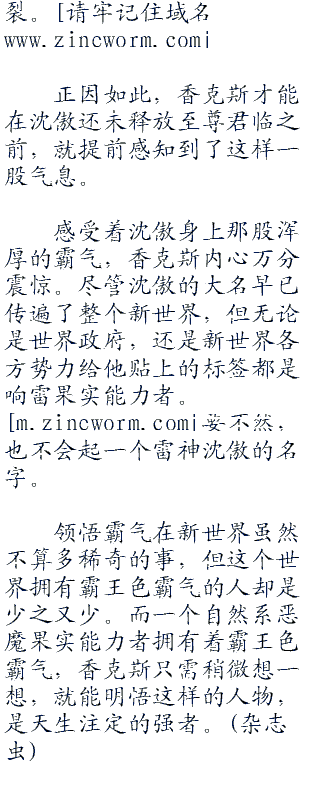 裂。[请牢记住域名
www.zincworm.com|
正因如此，香克斯才能
在沈傲还未释放至尊君临之
前，就提前感知到了这样一
股气息。
感受着沈傲身上那股浑
厚的霸气，香克斯内心万分
震惊。尽管沈傲的大名早已
传遍了整个新世界，但无论
是世界政府，还是新世界各
方势力给他贴上的标签都是
响雷果实能力者。
[m.zincworm.com|要不然，
也不会起一个雷神沈傲的名
字。
领悟霸气在新世界虽然
不算多稀奇的事，但这个世
界拥有霸王色霸气的人却是
少之又少。而一个自然系恶
魔果实能力者拥有着霸王色
霸气，香克斯只需稍微想一
想，就能明悟这样的人物，
是天生注定的强者。(杂志
虫)